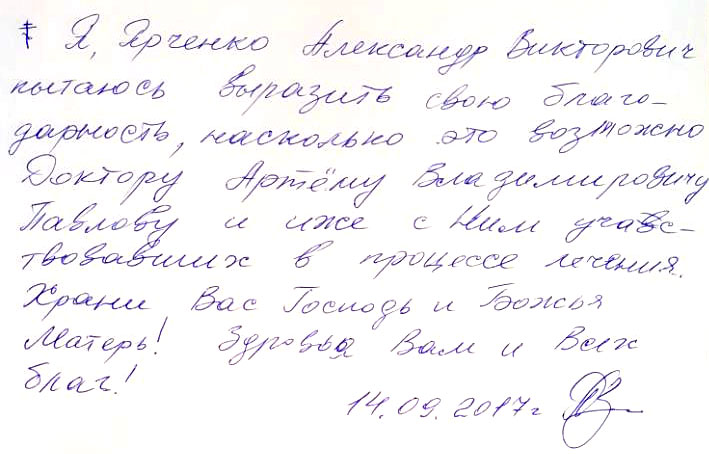 ☦ Я, Ярченко Александр Викторович
пытаюсь выразить свою благо-
дарность, насколько это возможно
Доктору Артёму Владимировичу
Павлову и иже с Ним учавс-
твовавших в процессе лечения.
Храни Вас Господь и Божья
Матерь! Здровья Вам и Всех
благ!
14.09.2017г